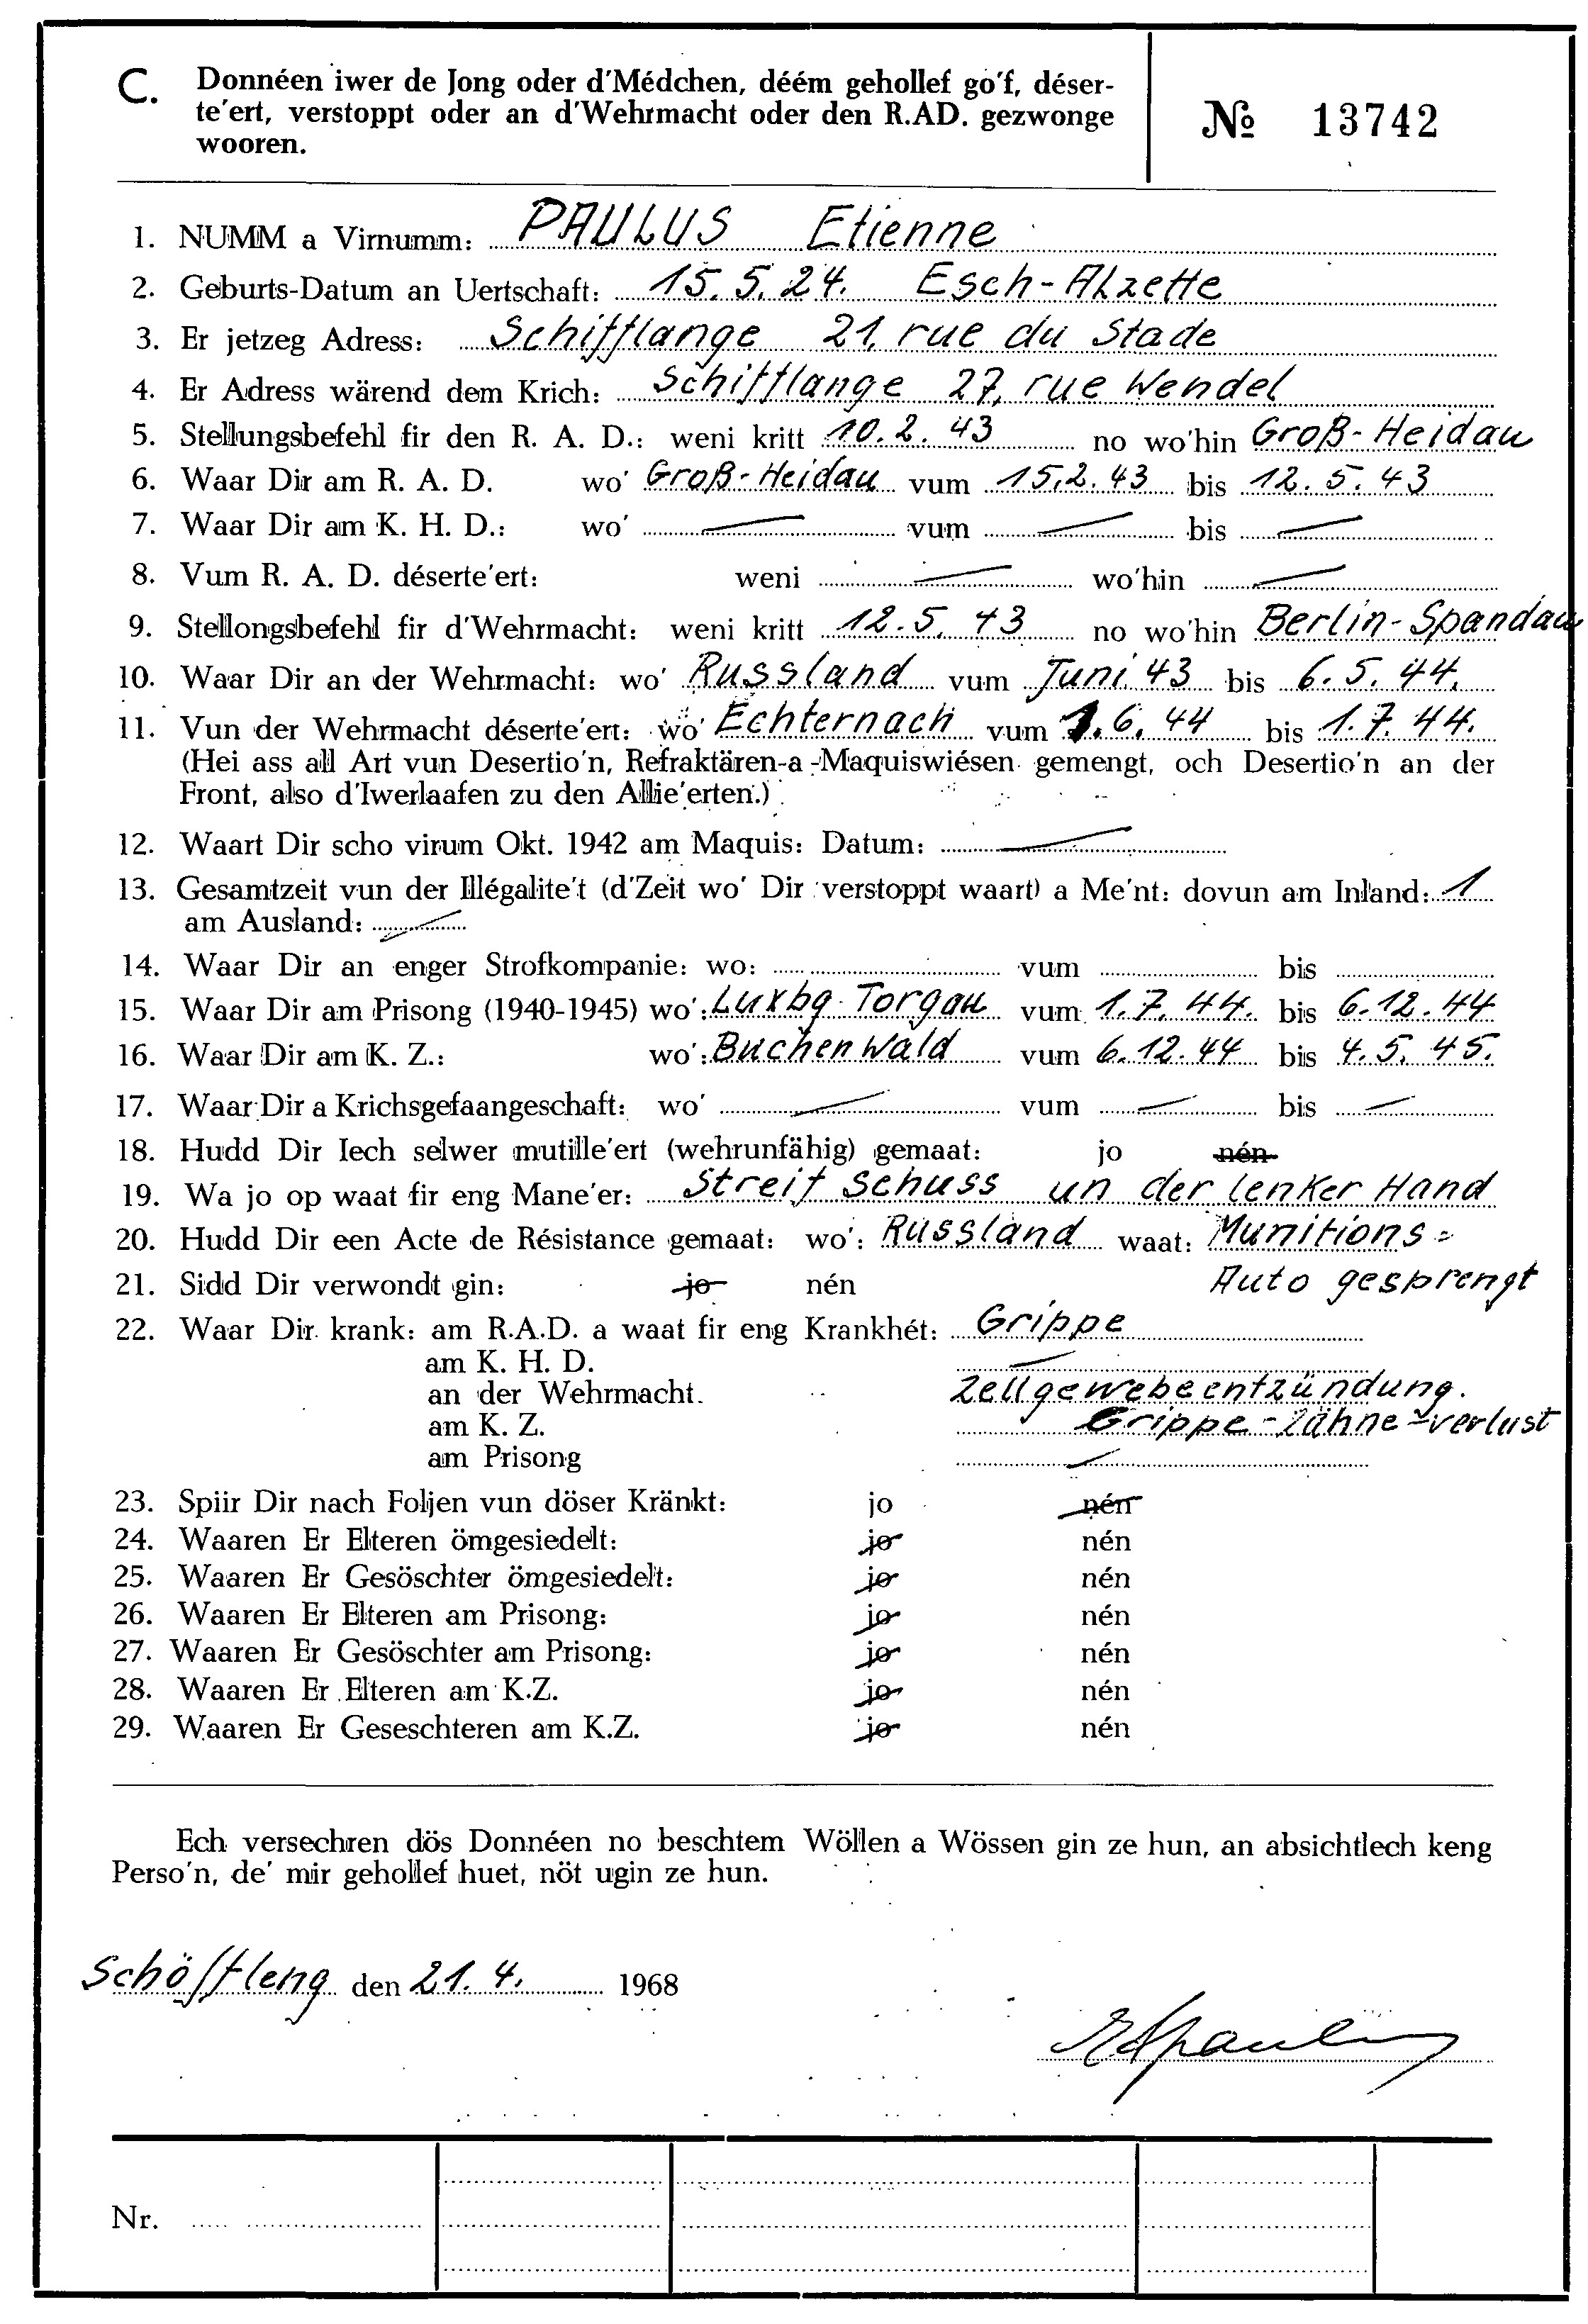 C. Donnéen iwer de Jong oder d'Médchen, déém gehollef go'f, déser-
te'ert, verstoppt oder an d'Wehrmacht oder den R.AD. gezwonge
wooren.
№ 13742
1. NUMM a Virnumm: PAULUS Etienne
2. Geburts-Datum an Uertschaft: 15.5.24. Esch-Alzette
3. Er jetzeg Adress: Schifflange 21, rue du Stade
4. Er Adress wärend dem Krich: Schifflange 27, rue Wendel
5. Stellungsbefehl fir den R. A. D.: weni kritt 10.2.43 no wo'hin Groß-Heidau
6. Waar Dir am R. A. D. wo' Groß-Heidau vum 15.2.43 bis 12.5.43
7. Waar Dir am K. H. D.: wo' — vum — bis —
8. Vum R. A. D. déserte'ert: weni — wo'hin —
9. Stellongsbefehl fir d'Wehrmacht: weni kritt 12.5.43 no wo'hin Berlin-Spandau
10. Waar Dir an der Wehrmacht: wo' Russland vum Juni 43 bis 6.5.44.
11. Vun der Wehrmacht déserte'ert: wo' Echternach vum 1.6.44 bis 1.7.44.
(Hei ass all Art vun Desertio'n, Refraktären-a-Maquiswiésen gemengt, och Desertio'n an der
Front, also d'Iwerlaafen zu den Allie'erten.)
12. Waart Dir scho virum Okt. 1942 am Maquis: Datum: —
13. Gesamtzeit vun der Illégalite't (d'Zeit wo' Dir verstoppt waart) a Me'nt: dovun am Inland: 1
am Ausland: —
14. Waar Dir an enger Strofkompanie: wo: vum bis
15. Waar Dir am Prisong (1940-1945) wo': Luxbg-Torgau vum 1.7.44. bis 6.12.44
16. Waar Dir am K. Z.: wo': Buchenwald vum 6.12.44 bis 4.5.45.
17. Waar Dir a Krichsgefaangeschaft: wo' — vum — bis —
18. Hudd Dir Iech selwer mutille'ert (wehrunfähig) gemaat: jo nén
19. Wa jo op waat fir eng Mane'er: Streif schuss un der lenker Hand
20. Hudd Dir een Acte de Résistance gemaat: wo': Russland waat: Munitions=
21. Sidd Dir verwondt gin: jo nén Auto gesprengt
22. Waar Dir krank: am R.A.D. a waat fir eng Krankhét: Grippe
am K. H. D. —
an der Wehrmacht. Zellgewebeentzündung.
am K. Z. Grippe-Zähne=verlust
am Prisong —
23. Spiir Dir nach Foljen vun döser Kränkt: jo nén
24. Waaren Er Elteren ömgesiedelt: jo nén
25. Waaren Er Gesöschter ömgesiedelt: jo nén
26. Waaren Er Elteren am Prisong: jo nén
27. Waaren Er Gesöschter am Prisong: jo nén
28. Waaren Er Elteren am K.Z. jo nén
29. Waaren Er Geseschteren am K.Z. jo nén
Ech versechren dös Donnéen no beschtem Wöllen a Wössen gin ze hun, an absichtlech keng
Perso'n, de' mir gehollef huet, nöt ugin ze hun.
Schöffleng den 21.4. 1968
Nr.